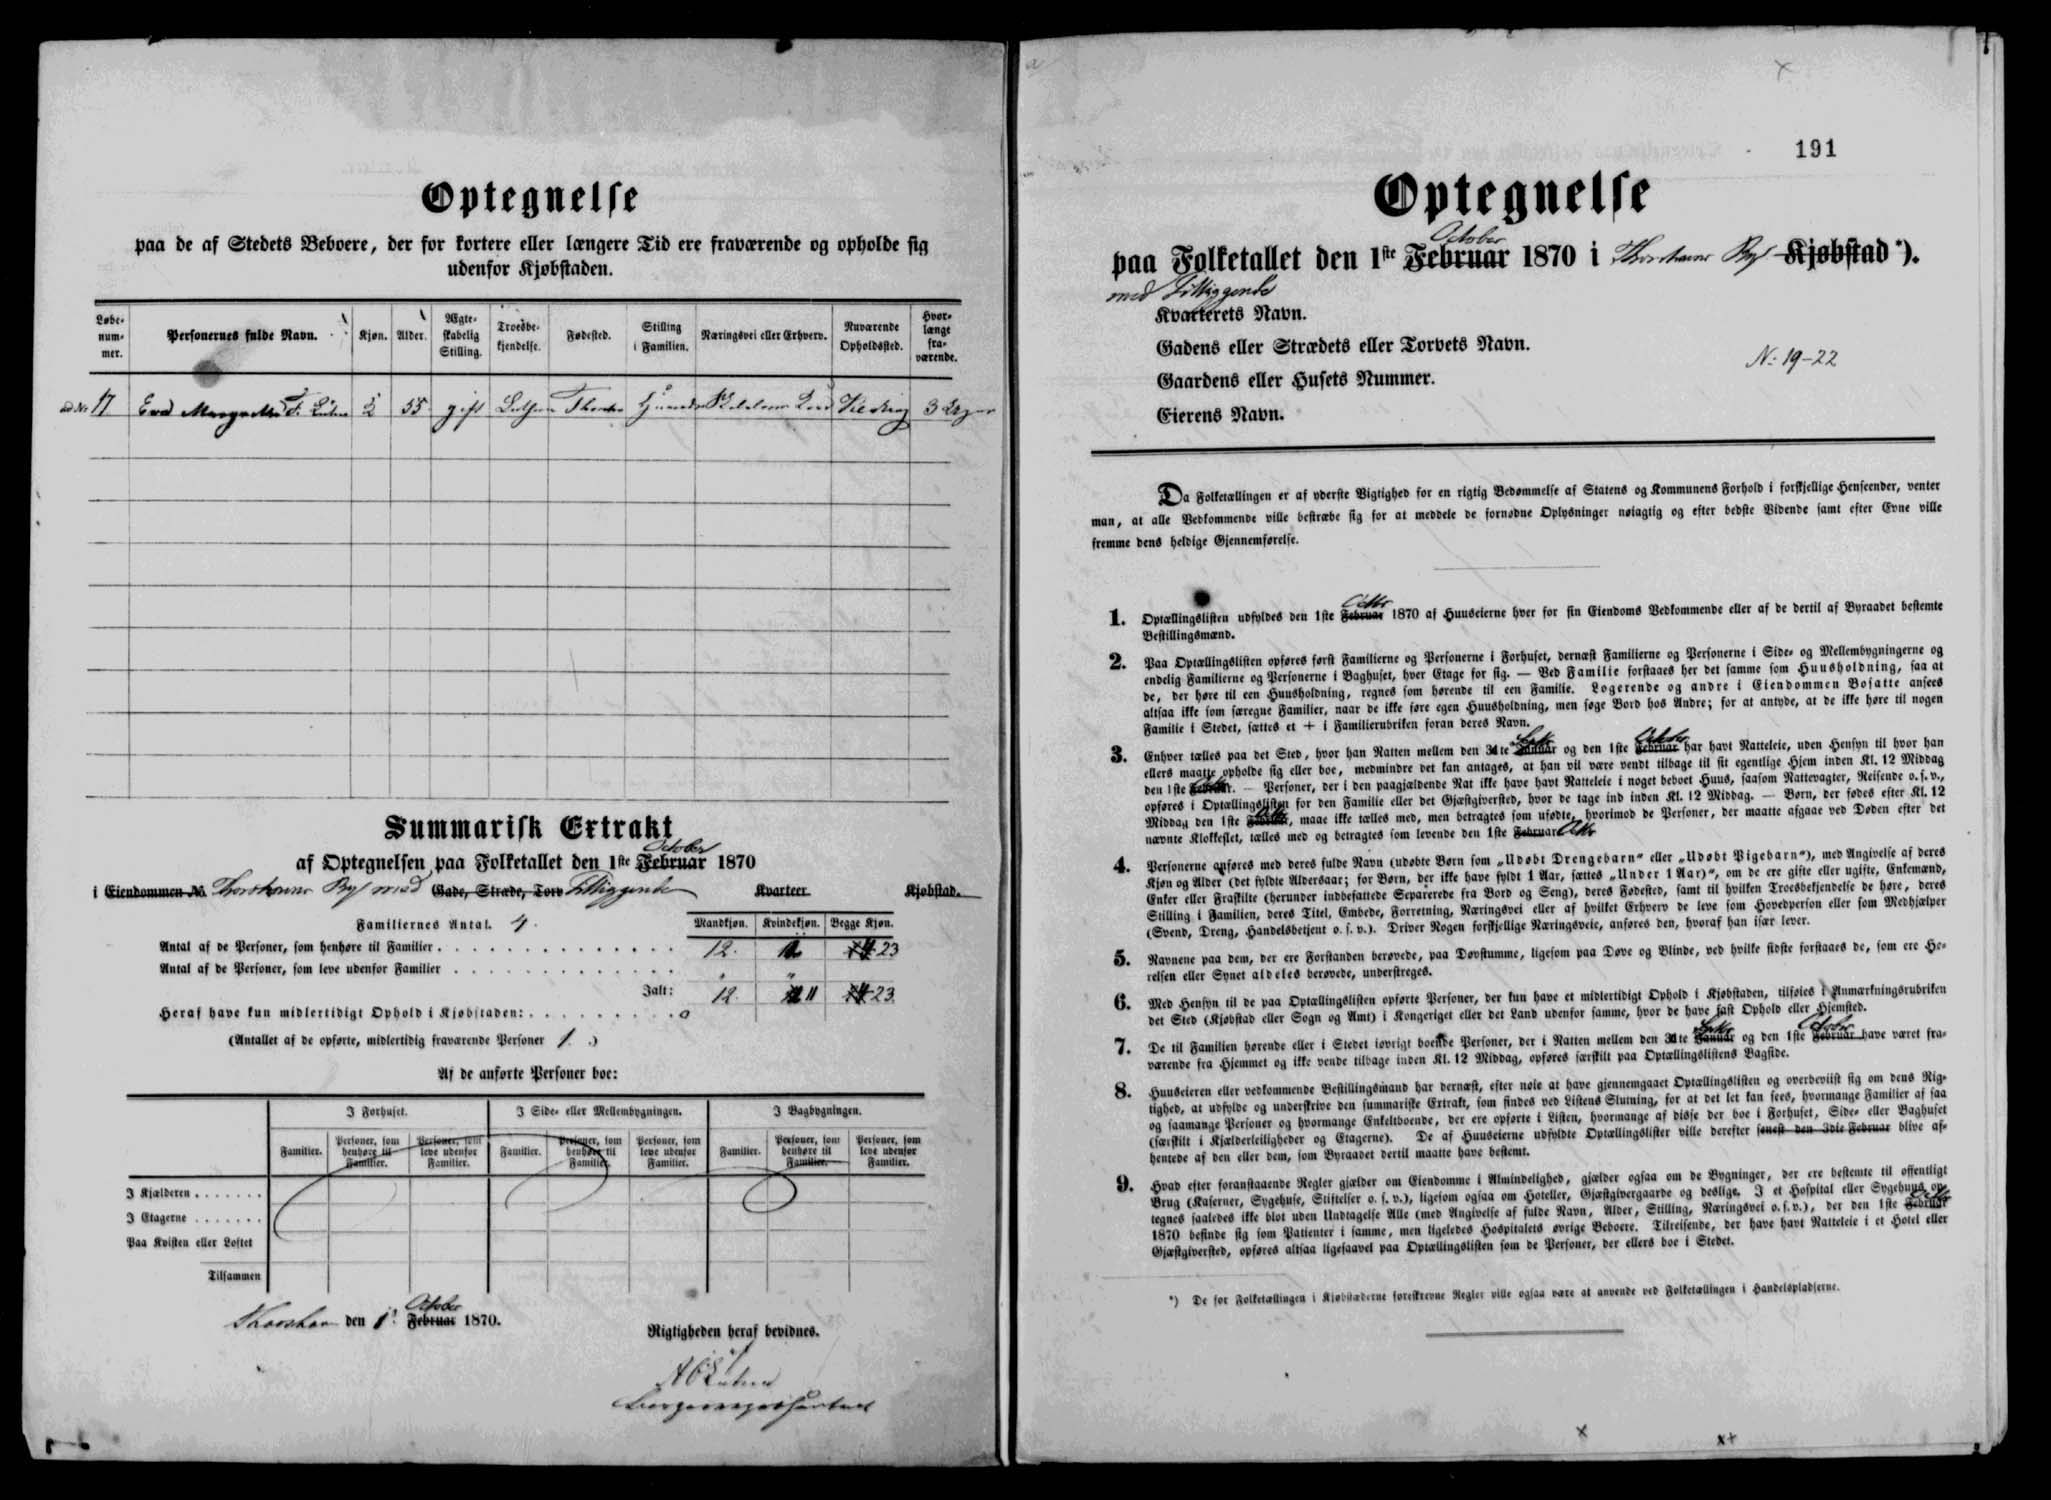 Optegnelse
paa de af Stedets Beboere, der for kortere eller længere Tid ere fraværende og opholde sig
udenfor Kjøbstaden.
Løbe-
num-
mer.
Personernes fulde Navn.
Kjøn.
Alder.
Ægte-
skabelig
Stilling.
Troesbe-
kjendelse.
Fødested.
Stilling
i Familien.
Næringsvei eller Erhverv.
Nuværende
Opholdssted.
Hvor-
længe
fra-
værende.
17 Eva Margrethe 55 gift
Summarisk Extrakt
October
af Optegnelsen paa Folketallet den 1ste Februar 1870
i Eiendommen No. Thorshavns By med Gade, Stræde, Torv Tilliggende Kvarteer Kjøbstad.
Familiernes Antal. 4.
Mandkjøn. Kvindekjøn. Begge Kjøn.
Antal af de Personer, som henhøre til Familier 12. 23
Antal af de Personer, som leve udenfor Familier " "
Ialt: 12. 11 23.
Heraf have kun midlertidigt Ophold i Kjøbstaden: 0
(Antallet af de opførte, midlertidig fraværende Personer 1.)
Af de anførte Personer boe:
I Forhuset. I Side- eller Mellembygningen. I Bagbygningen.
Familier. Personer, som henhøre til Familier. Personer, som leve udenfor Familier. Familier. Personer, som henhøre til Familier. Personer, som leve udenfor Familier. Familier. Personer, som henhøre til Familier. Personer, som leve udenfor Familier.
I Kjælderen
I Etagerne
Paa Kvisten eller Loftet
Tilsammen
October
Thorshavn den 1. Februar 1870.
Rigtigheden heraf bevidnes.
191
Optegnelse
October
paa Folketallet den 1ste Februar 1870 i Thorshavns By Kjøbstad*).
med Tilliggende
Kvarterets Navn.
Gadens eller Strædets eller Torvets Navn.
No 19-22
Gaardens eller Husets Nummer.
Eierens Navn.
Da Folketællingen er af yderste Vigtighed for en rigtig Bedømmelse af Statens og Kommunens Forhold i forskjellige Henseender, venter
man, at alle Vedkommende ville bestræbe sig for at meddele de fornødne Oplysninger nøiagtig og efter bedste Vidende samt efter Evne ville
fremme dens heldige Gjennemførelse.
Octbr
1. Optællingslisten udfyldes den 1ste Februar 1870 af Huuseierne hver for sin Eiendoms Vedkommende eller af de dertil af Byraadet bestemte
Bestillingsmænd.
2. Paa Optællingslisten opføres først Familierne og Personerne i Forhuset, dernæst Familierne og Personerne i Side- og Mellembygningerne og
endelig Familierne og Personerne i Baghuset, hver Etage for sig. — Ved Familie forstaaes her det samme som Huusholdning, saa at
de, der høre til een Huusholdning, regnes som hørende til een Familie. Logerende og andre i Eiendommen Bosatte ansees
altsaa ikke som særegne Familier, naar de ikke føre egen Huusholdning, men søge Bord hos Andre; for at antyde, at de ikke høre til nogen
Familie i Stedet, sættes et + i Familierubriken foran deres Navn.
Septbr October
3. Enhver tælles paa det Sted, hvor han Natten mellem den 31te Januar og den 1ste Februar har havt Natteleie, uden Hensyn til hvor han
ellers maatte opholde sig eller boe, medmindre det kan antages, at han vil være vendt tilbage til sit egentlige Hjem inden Kl. 12 Middag
den 1ste Februar. — Personer, der i den paagjældende Nat ikke have havt Natteleie i noget beboet Huus, saasom Nattevagter, Reisende o. s. v.,
opføres i Optællingslisten for den Familie eller det Gjæstgiversted, hvor de tage ind inden Kl. 12 Middag. — Børn, der fødes efter Kl. 12
Middag den 1ste Februar, maae ikke tælles med, men betragtes som ufødte, hvorimod de Personer, der maatte afgaae ved Døden efter det
nævnte Klokkeslet, tælles med og betragtes som levende den 1ste Februar Octbr
4. Personerne anføres med deres fulde Navn (udøbte Børn som „Udøbt Drengebarn“ eller „Udøbt Pigebarn“), med Angivelse af deres
Kjøn og Alder (det fyldte Aldersaar; for Børn, der ikke have fyldt 1 Aar, sættes „Under 1 Aar)“, om de ere gifte eller ugifte, Enkemænd,
Enker eller Fraskilte (herunder indbefattede Separerede fra Bord og Seng), deres Fødested, samt til hvilken Troesbekjendelse de høre, deres
Stilling i Familien, deres Titel, Embede, Forretning, Næringsvei eller af hvilket Erhverv de leve som Hovedperson eller som Medhjælper
(Svend, Dreng, Handelsbetjent o. s. v.). Driver Nogen forskjellige Næringsveie, anføres den, hvoraf han især lever.
5. Navnene paa dem, der ere Forstanden berøvede, paa Døvstumme, ligesom paa Døve og Blinde, ved hvilke sidste forstaaes de, som ere Hø-
relsen eller Synet aldeles berøvede, understreges.
6. Med Hensyn til de paa Optællingslisten opførte Personer, der kun have et midlertidigt Ophold i Kjøbstaden, tilføies i Anmærkningsrubriken
det Sted (Kjøbstad eller Sogn og Amt) i Kongeriget eller det Land udenfor samme, hvor de have fast Ophold eller Hjemsted.
Septbr October
7. De til Familien hørende eller i Stedet iøvrigt boende Personer, der i Natten mellem den 31te Januar og den 1ste Februar have været fra-
værende fra Hjemmet og ikke vende tilbage inden Kl. 12 Middag, opføres særskilt paa Optællingslistens Bagside.
8. Huuseieren eller vedkommende Bestillingsmand har dernæst, efter nøie at have gjennemgaaet Optællingslisten og overbeviist sig om dens Rig-
tighed, at udfylde og underskrive den summariske Extrakt, som findes ved Listens Slutning, for at det let kan sees, hvormange Familier af saa
og saamange Personer og hvormange Enkeltboende, der ere opførte i Listen, hvormange af disse der boe i Forhuset, Side- eller Baghuset
(særskilt i Kjælderleiligheder og Etagerne). De af Huuseierne udfyldte Optællingslister ville derefter senest den 3die Februar blive af-
hentede af den eller dem, som Byraadet dertil maatte have bestemt.
9. Hvad efter foranstaaende Regler gjælder om Eiendomme i Almindelighed, gjælder ogsaa om de Bygninger, der ere bestemte til offentligt
Brug (Kaserner, Sygehuse, Stiftelser o. s. v.), ligesom ogsaa om Hoteller, Gjæstgivergaarde og deslige. I et Hospital eller Sygehuus op-
Octbr
tegnes saaledes ikke blot uden Undtagelse Alle (med Angivelse af fulde Navn, Alder, Stilling, Næringsvei o. s. v.), der den 1ste Februar
1870 befinde sig som Patienter i samme, men ligeledes Hospitalets øvrige Beboere. Tilreisende, der have havt Natteleie i et Hotel eller
Gjæstgiversted, opføres altsaa ligesaavel paa Optællingslisten som de Personer, der ellers boe i Stedet.
*) De for Folketællingen i Kjøbstæderne foreskrevne Regler ville ogsaa være at anvende ved Folketællingen i Handelspladserne.